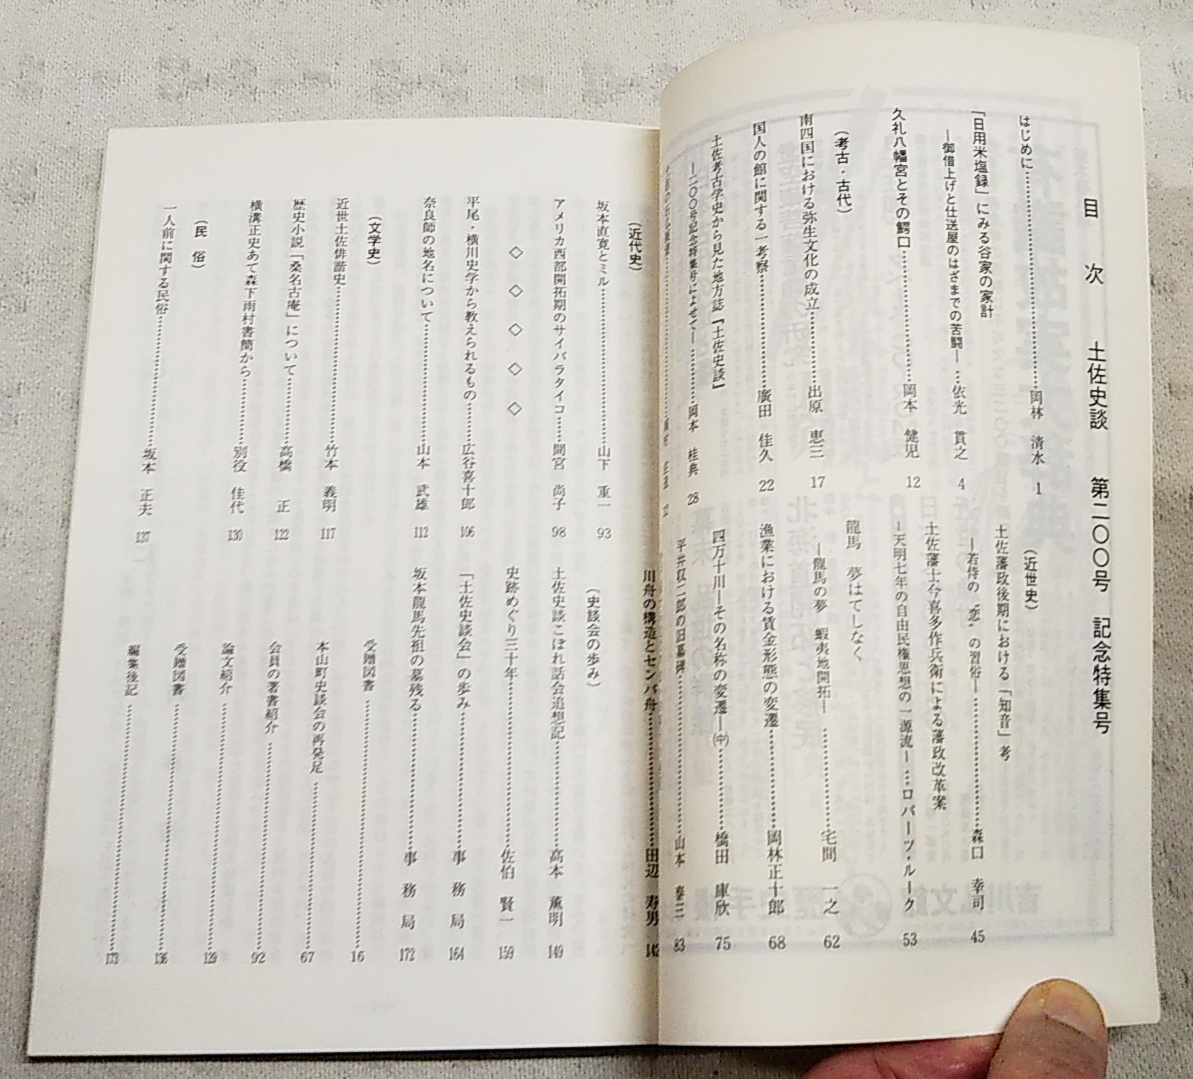 目次 土佐史談 第二〇〇号 記念特集号
はじめに……岡林 清水 1
「日用米塩録」にみる谷家の家計
―御借上げと仕送屋のはざまでの苦闘―…依光 貫之 4
久礼八幡宮とその鰐口……岡本 健児 12
(考古・古代)
南四国における弥生文化の成立……出原 恵三 17
国人の館に関する一考察……廣田 佳久 22
土佐考古学史から見た地方誌『土佐史談』
―二〇〇号記念特集号によせて―……岡本 桂典 28
(近世史)
土佐藩政後期における「知音」考
―若侍の〝恋〟の習俗―……森口 幸司 45
土佐藩士今喜多作兵衛による藩政改革案
―天明七年の自由民権思想の一源流―…ロバーツ・ルーク 53
龍馬 夢はてしなく
―龍馬の夢 蝦夷地開拓―……宅間 一之 62
漁業における賃金形態の変遷……岡林正十郎 68
四万十川―その名称の変遷―㈥……橋田 庫欣 75
平井収二郎の旧墓碑……山本 泰三 83
(近代史)
坂本直寛とミル……山下 重一 93
アメリカ西部開拓期のサイバラタイコ……間宮 尚子 98
◇ ◇ ◇ ◇ ◇
平尾・横川史学から教えられるもの……広谷喜十郎 106
奈良師の地名について……山本 武雄 112
(文学史)
近世土佐俳諧史……竹本 義明 117
歴史小説「桑名古庵」について……高橋 正 122
横溝正史あて森下雨村書簡から……別役 佳代 130
(民俗)
一人前に関する民俗……坂本 正夫 137
川舟の構造とセンバ舟……田辺 寿男 142
(史談会の歩み)
土佐史談こぼれ話会追想記……高本 薫明 149
史跡めぐり三十年……佐伯 賢一 159
「土佐史談会」の歩み……事務局 164
坂本龍馬先祖の墓残る……事務局 172
受贈図書……16
本山町史談会の再発足……67
会員の著書紹介……92
論文紹介……129
受贈図書……136
編集後記……173